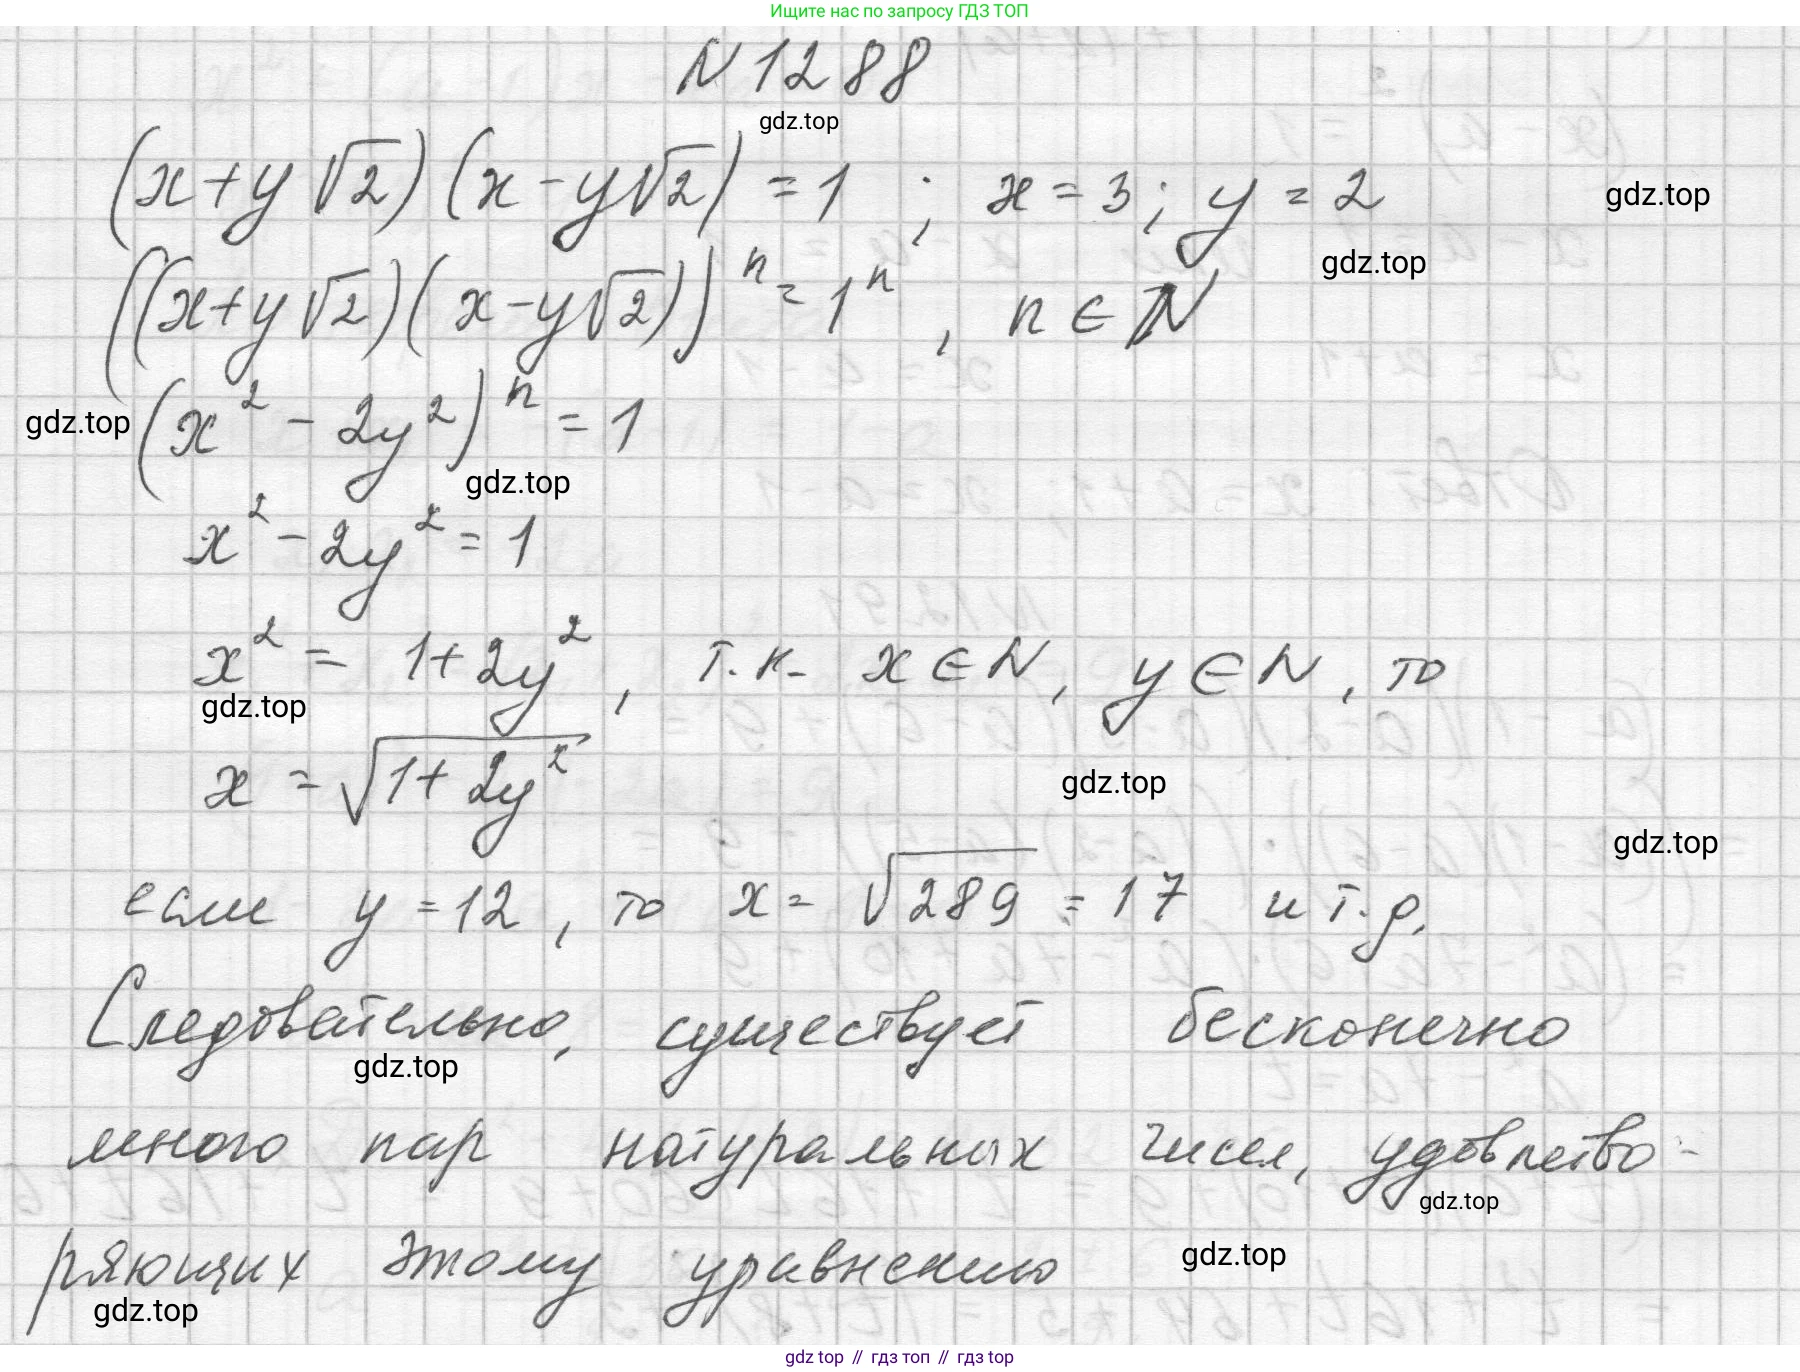 Ищите нас по запросу ГДЗ ТОП
N 1288
gdz.top
(x+y√2)(x-y√2) = 1 ; x = 3; y = 2
gdz.top
gdz.top
((x+y√2)(x-y√2))ⁿ = 1ⁿ, n ∈ N
gdz.top
(x² - 2y²)ⁿ = 1
gdz.top
x² - 2y² = 1
x² = 1+2y², т.к. x ∈ N, y ∈ N, то
gdz.top
x = √(1+2y²)
gdz.top
gdz.top
если y = 12, то x = √289 = 17 и т.д.
Следовательно, существует бесконечно
gdz.top
много пар натуральных чисел, удовлетво-
gdz.top
ряющих этому уравнению
gdz.top
gdz.top
gdz top // гдз топ // гдз top